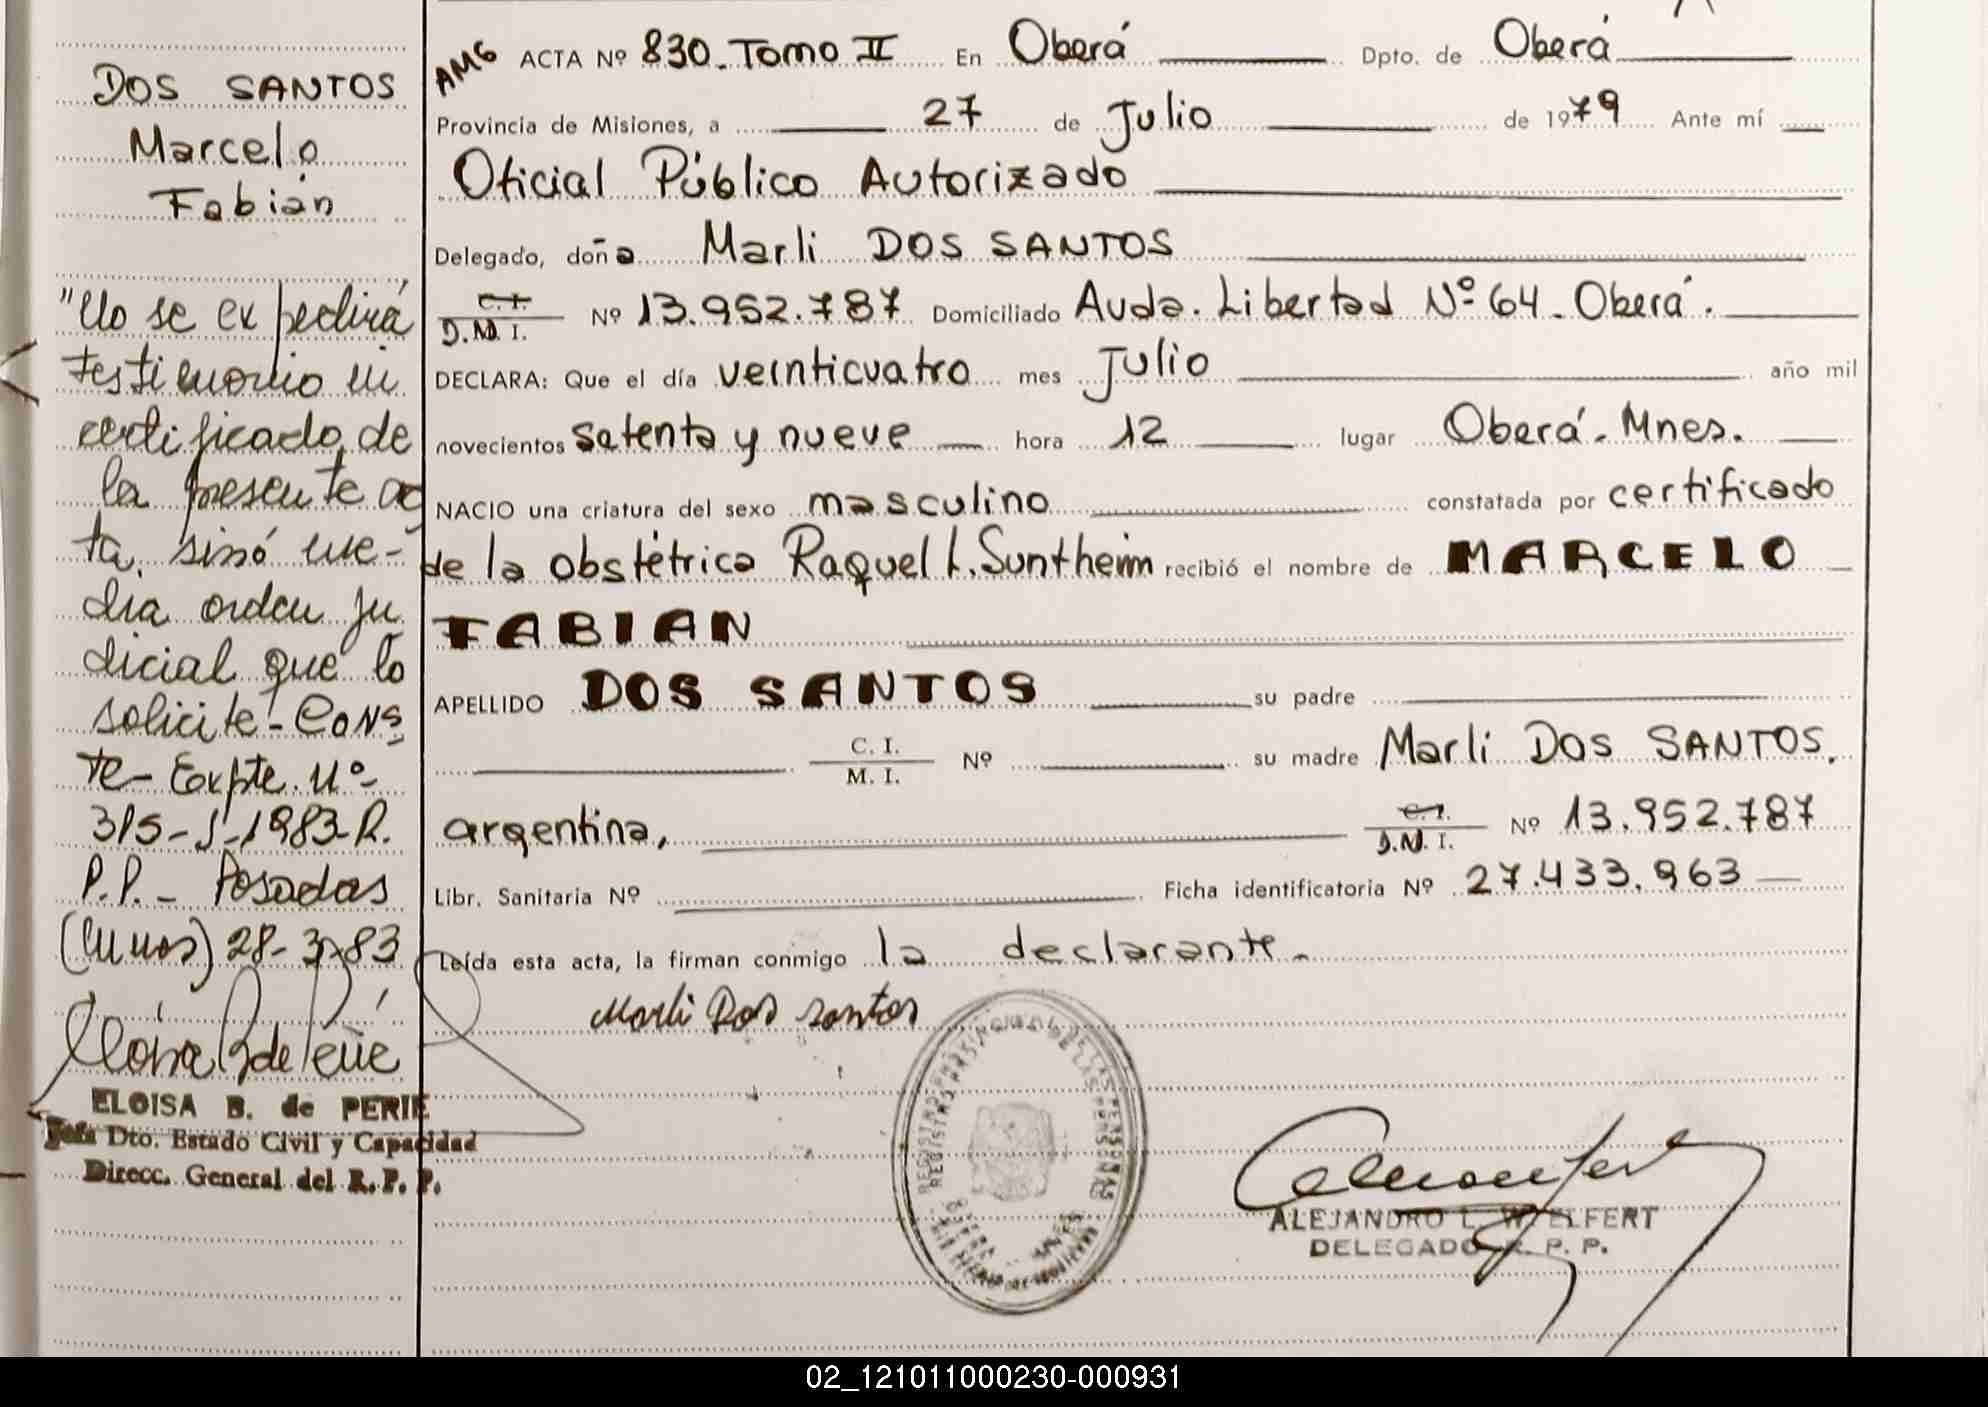 DOS SANTOS
Marcelo
Fabián
"No se expedirá
testimonio ni
certificado de
la presente ac
ta, sinó me-
dia orden ju
dicial que lo
solicite - Cons
te - Expte. Nº-
315-S-1983-R.
P.P. - Posadas
(Mnes) 28-3-83
ELOISA B. de PERIE
Jefa Dto. Estado Civil y Capacidad
Direcc. General del R. P. P.
AMG ACTA Nº 830. Tomo II En Oberá Dpto. de Oberá
Provincia de Misiones, a 27 de Julio de 1979 Ante mí
Oficial Público Autorizado
Delegado, doña Marli DOS SANTOS
C.I.
D.N.I. Nº 13.952.787 Domiciliado Avda. Libertad Nº 64 - Oberá.
DECLARA: Que el día veinticuatro mes Julio año mil
novecientos setenta y nueve hora 12 lugar Oberá - Mnes.
NACIO una criatura del sexo masculino constatada por certificado
de la obstétrica Raquel L. Suntheim recibió el nombre de MARCELO
FABIAN
APELLIDO DOS SANTOS su padre
C. I.
M. I. Nº su madre Marli DOS SANTOS,
argentina, C.I.
D.N.I. Nº 13.952.787
Libr. Sanitaria Nº Ficha identificatoria Nº 27.433.963
Leída esta acta, la firman conmigo la declarante.
Marli Dos santos
ALEJANDRO L. W. ELFERT
DELEGADO R. P. P.
02_121011000230-000931